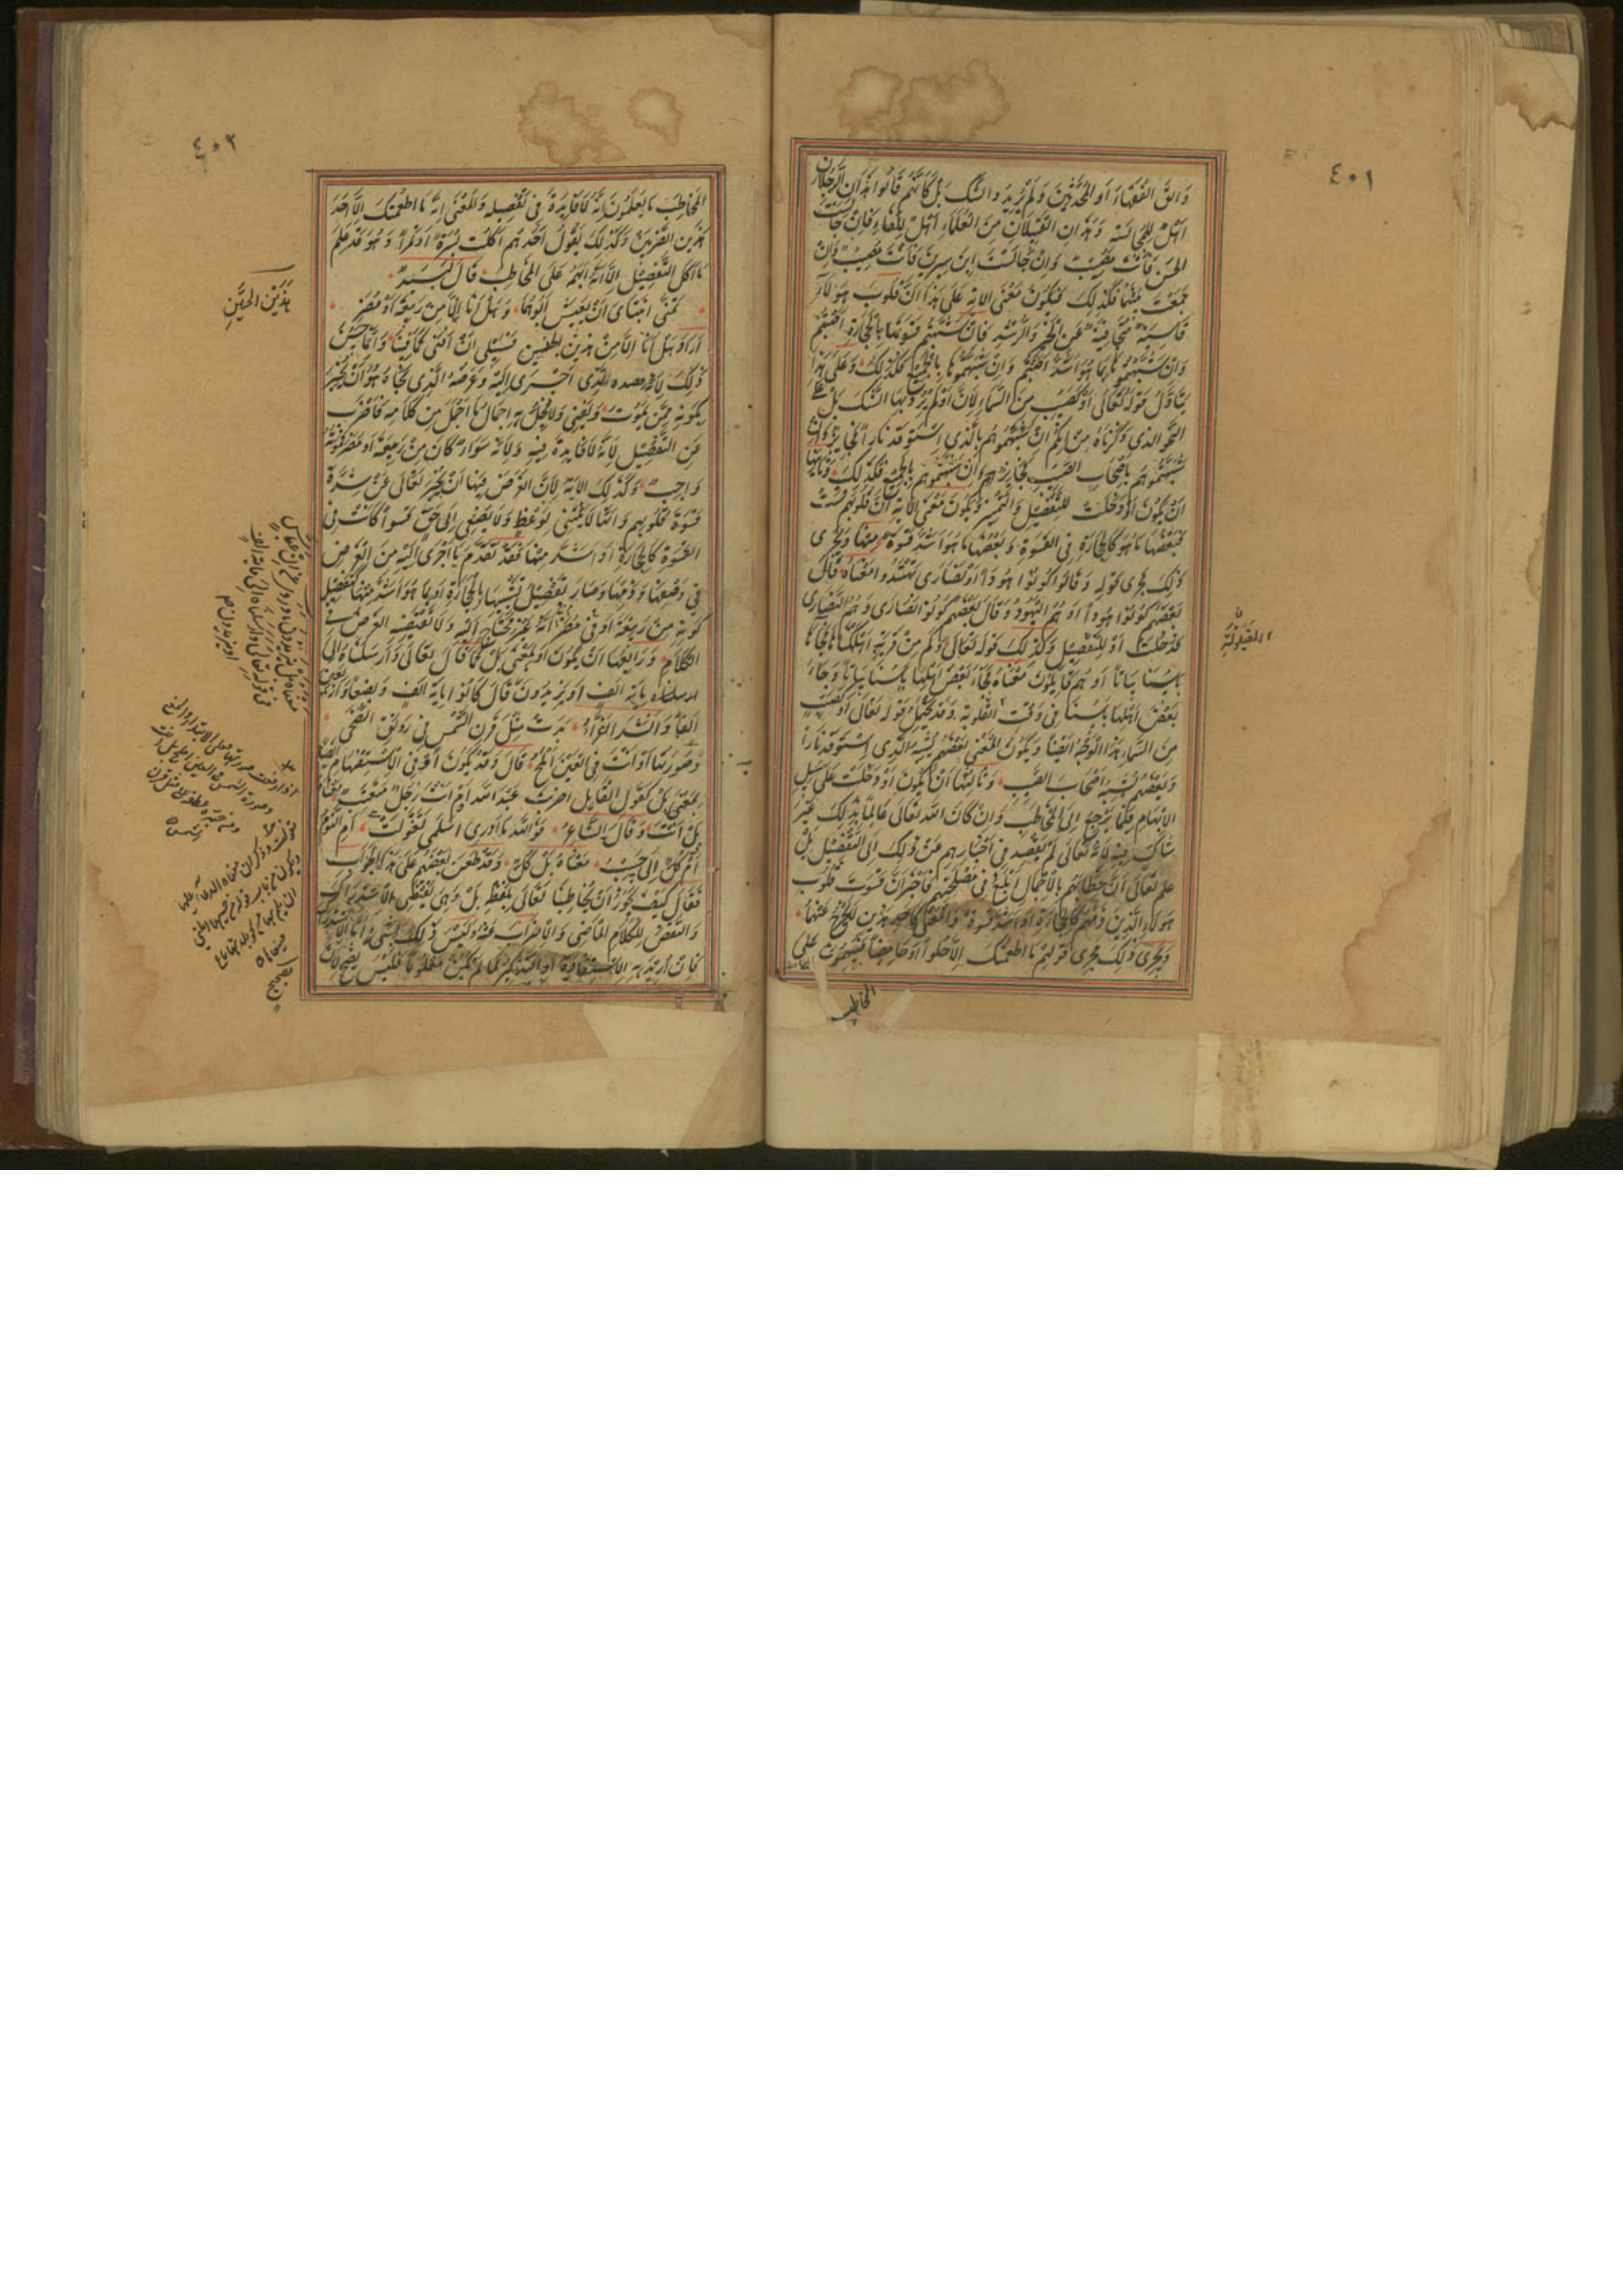 ٤٠١
وَالق الفُقَهَاءَ أو المُحَدِّثينَ وَلَمْ يُرِيدوا الشّك بَلْ كَأَنَّهُم قَالُوا هَذَانِ الرَّجُلَانِ
أهْلٌ لِلْمُجَالَسَة وَهَذَانِ القَبِيلَانِ مِنَ العُلَمَاءِ أهْلٌ لِلِّقَاءِ فَإنْ جَالَسْتَ
الحَسَن فَأنْتَ مُصِيبٌ وَإنْ جَالَسْتَ ابْنَ سِيرِينَ فَأنْتَ مُصِيبٌ وَإنْ
جَمَعْتَ بَيْنَهُمَا فَكَذلِكَ فَيَكُونُ مَعْنَى الآيَةِ عَلَى هَذَا أنَّ قُلُوبَ هَؤلَاءِ
قَاسِيَة مُتَجَافِيَةٌ عَنِ الخَيْرِ وَالرُّشْدِ فَإنْ شَبَّهْتُمْ قَسْوَتَهَا بِالحِجَارَةِ أصَبْتُمْ
وَإنْ شَبَّهْتُمُوهَا بِمَا هُوَ أشَدُّ أصَبْتُمْ وَإنْ شَبَّهْتُمُوهَا بِالجَمِيعِ فَكَذلِكَ وَعَلَى هَذَا
يُتَأَوَّلُ قَوْلُهُ تَعَالَى أوْ كَصَيِّبٍ مِنَ السَّمَاءِ لأنَّ أوْ لَمْ يُرَدْ بِهَا الشَّكّ بَلْ عَلَى
النَّحْوِ الذي ذَكَرْنَاهُ مِنْ أنَّكُمْ إنْ شَبَّهْتُمُوهُمْ بِالَّذِي اسْتَوْقَدَ نَارًا فَجَائِزٌ وَإنْ
شَبَّهْتُمُوهُمْ بِأصْحَابِ الصَّيِّبِ فَجَائِزٌ وَإنْ شَبَّهْتُمُوهُمْ بِالجَمِيعِ فَكَذلِكَ وَثَانِيهَا
أنْ يَكُونَ أوْ دَخَلَتْ لِلتَّفْصِيلِ وَالتَّمْيِيزِ وَيَكُونَ مَعْنَى الآيَةِ إنَّ قُلُوبَهُمْ قَسَتْ
فَبَعْضُهَا مَا هُوَ كَالحِجَارَةِ فِي القَسْوَةِ وَبَعْضُهَا مَا هُوَ أشَدُّ قَسْوَةً مِنْهَا وَيَجْرِي
ذَلِكَ مَجْرَى قَوْلِهِ وَقَالُوا كُونُوا هُودًا أوْ نَصَارَى تَهْتَدُوا مَعْنَاهُ قَالَ
بَعْضُهُمْ كُونُوا هُودًا وَهُمُ اليَهُودُ وَقَالَ بَعْضُهُمْ كُونُوا نَصَارَى وَهُمُ النَّصَارَى
فَدَخَلَتْ أوْ لِلتَّفْصِيلِ وَكَذَلِكَ قَوْلُهُ تَعَالَى وَكَمْ مِنْ قَرْيَةٍ أهْلَكْنَاهَا فَجَاءَهَا
بَأْسُنَا بَيَاتًا أوْ هُمْ قَائِلُونَ مَعْنَاهُ فَجَاءَ بَعْضَ أهْلِهَا بَأْسُنَا بَيَاتًا وَجَاءَ
بَعْضَ أهْلِهَا بَأْسُنَا فِي وَقْتِ القَيْلُولَةِ وَقَدْ يَحْتَمِلُ قَوْلُهُ تَعَالَى أوْ كَصَيِّبٍ
مِنَ السَّمَاءِ هَذَا الوَجْهَ أيْضًا وَيَكُونُ المَعْنَى بَعْضُهُمْ يُشْبِهُ الَّذِي اسْتَوْقَدَ نَارًا
وَبَعْضُهُمْ يُشْبِهُ أصْحَابَ الصَّيِّبِ وَثَالِثُهَا أنْ يَكُونَ أوْ دَخَلَتْ عَلَى سَبِيلِ
الإبْهَامِ فِيمَا يَرْجِعُ إلَى المُخَاطَبِ وَإنْ كَانَ اللهُ تَعَالَى عَالِمًا بِذَلِكَ غَيْرَ
شَاكٍّ فِيهِ لأنَّهُ تَعَالَى لَمْ يَقْصِدْ فِي إخْبَارِهِمْ عَنْ ذَلِكَ إلَى التَّفْصِيلِ بَلْ
عَلِمَ تَعَالَى أنَّ خِطَابَهُمْ بِالإجْمَالِ أبْلَغُ فِي مَصْلَحَتِهِمْ فَأخْبَرَ أنَّ قَسْوَةَ قُلُوبِ
هَؤلَاءِ الَّذِينَ ذَمَّهُمْ كَالحِجَارَةِ أوْ أشَدُّ قَسْوَةً وَالمَعْنَى كَأحَدِ هَذَيْنِ لَا يَخْرُجُ عَنْهُمَا
وَيَجْرِي ذَلِكَ مَجْرَى قَوْلِهِمْ مَا أطْعَمْتُكَ إلَّا حُلْوًا أوْ حَامِضًا فَيُبْهِمُونَ عَلَى
المخاطب
القَيْلُولَةِ
٤٠٢
المُخَاطَبِ مَا يَعْلَمُونَ أنَّهُ لَا فَائِدَةَ فِي تَفْصِيلِهِ وَالمَعْنَى إنَّهُ مَا أطْعَمْتُكَ إلَّا أحَدَ
هَذَيْنِ الضَّرْبَيْنِ وَكَذَلِكَ يَقُولُ أحَدُهُمْ أكَلْتُ بُسْرَةً أوْ تَمْرًا وَهُوَ قَدْ عَلِمَ
مَا أكَلَ التَّفْصِيلَ إلَّا أنَّهُ أبْهَمَ عَلَى المُخَاطَبِ قَالَ لَبِيدٌ
تَمَنَّى ابْنَتَايَ أنْ يَعِيشَ أبُوهُمَا وَهَلْ أنَا إلَّا مِنْ رَبِيعَةَ أوْ مُضَرْ
أرَادَ هَلْ أنَا إلَّا مِنْ هَذَيْنِ فَسَبِيلِي أنْ أفْنَى كَمَا فَنِيَا وَإنَّمَا حَسُنَ
ذَلِكَ لأنَّ قصده الَّذِي أجْرَى إلَيْهِ وَغَرَضَهُ الَّذِي نَحَاهُ هُوَ أنْ يُخْبِرَ
بِكَوْنِهِ مِمَّنْ يَمُوتُ وَيَفْنَى وَلَا يُخِلُّ بِهِ إجْمَالُ مَا أجْمَلَ مِنْ كَلَامِهِ فَأضْرَبَ
عَنِ التَّفْصِيلِ لأنَّهُ لَا فَائِدَةَ فِيهِ وَلأنَّهُ سَوَاءٌ كَانَ مِنْ رَبِيعَةَ أوْ مُضَرَ فَمَوْتُهُ
وَاجِبٌ وَكَذَلِكَ الآيَةُ لأنَّ الغَرَضَ فِيهَا أنْ يُخْبِرَ تَعَالَى عَنْ شِدَّةِ
قَسْوَةِ قُلُوبِهِمْ وَأنَّهَا لَا تَنْثَنِي لِوَعْظٍ وَلَا تُصْغِي إلَى حَقٍّ فَسَوَاءٌ كَانَتْ فِي
القَسْوَةِ كَالحِجَارَةِ أوْ أشَدَّ مِنْهَا فَقَدْ تَقَدَّمَ مَا أجْرَى إلَيْهِ مِنَ الغَرَضِ
فِي وَصْفِهَا وَذَمِّهَا وَصَارَ تَفْصِيلُ تَشْبِيهِهَا بِالحِجَارَةِ أوْ بِمَا هُوَ أشَدُّ مِنْهَا كَتَفْصِيلِ
كَوْنِهِ مِنْ رَبِيعَةَ أوْ مِنْ مُضَرَ فِي أنَّهُ غَيْرُ مُحْتَاجٍ إلَيْهِ وَلَا يَقْتَضِيهِ الغَرَضُ فِي
الكَلَامِ وَرَابِعُهَا أنْ يَكُونَ أوْ بِمَعْنَى بَلْ كَمَا قَالَ تَعَالَى وَأرْسَلْنَاهُ إلَى
مائة ألف أوْ يَزِيدُونَ قَالَ كَانُوا مِائَةَ ألْفٍ وَبِضْعًا وَأرْبَعِينَ
ألْفًا وَأنْشَدَ الفَرَّاءُ بَدَتْ مِثْلَ قَرْنِ الشَّمْسِ فِي رَوْنَقِ الضُّحَى
وَصُورَتِهَا أوْ أنْتِ فِي العَيْنِ أمْلَحُ قَالَ وَقَدْ يَكُونُ أمْ فِي الاسْتِفْهَامِ أيْضًا
بِمَعْنَى بَلْ كَقَوْلِ القَائِلِ أضَرَبْتَ عَبْدَ اللهِ أمْ أنْتَ رَجُلٌ مُتَعَنِّتٌ مَعْنَاهُ
بَلْ أنْتَ وَقَالَ الشَّاعِرُ فَوَاللهِ مَا أدْرِي أسَلْمَى تَغَوَّلَتْ أمِ النَّوْمُ
أمْ كُلٌّ إلَيَّ حَبِيبُ مَعْنَاهُ بَلْ كُلٌّ وَقَدْ طَعَنَ بَعْضُهُمْ عَلَى هَذَا الجَوَابِ
فَقَالَ كَيْفَ يَجُوزُ أنْ يُخَاطِبَنَا تَعَالَى بِلَفْظِ بَلْ وَهِيَ تَقْتَضِي الاسْتِدْرَاكَ
وَالنَّقْضَ لِلْكَلَامِ المَاضِي وَالإضْرَابَ عَنْهُ وَلَيْسَ ذَلِكَ بِشَيْءٍ أمَّا الاسْتِدْرَاكُ
فَإنْ أُرِيدَ بِهِ الاسْتِفَادَةُ أوِ التَّذَكُّرُ لِمَا لَمْ يَكُنْ مَعْلُومًا فَلَيْسَ بِصَحِيحٍ لأنَّ
هَذَيْنِ الحَيَّيْنِ